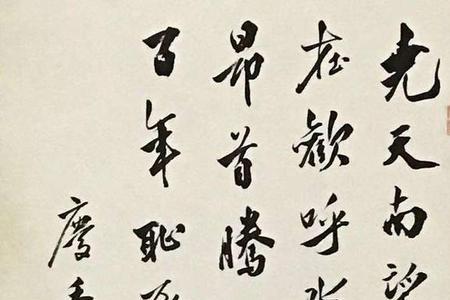 尧天南
在歡呼
昂首騰
百年恥
慶